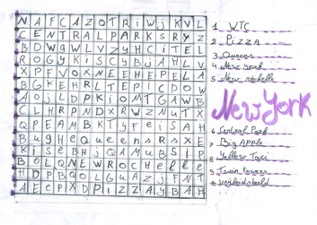 NAFCAZOTRIWJKVL
CENTRALPARKSRYZ
BDWGWLVZYHCITEL
ROGYKISCYBJAHLV
XPFVOXNEEHEPELA
BGKEHRLTEPICDOW
AOJLDPKIOMTGAWB
CLHRPNDXRWZNUTX
QPEAMBKTYFEISAH
BUGHEQUEENSRSXE
KISEBHJQAMUBSIP
BOLQNEWROCHELLE
HDPBQOLGUAZJFNT
AECPXDPIZZAYBAH
1 WTC
2 PIZZA
3 Queens
4 New york
5 New rochelle
New York
6 Central Park
7 Big Apple
8 Yellow Taxi
9 Twin towers